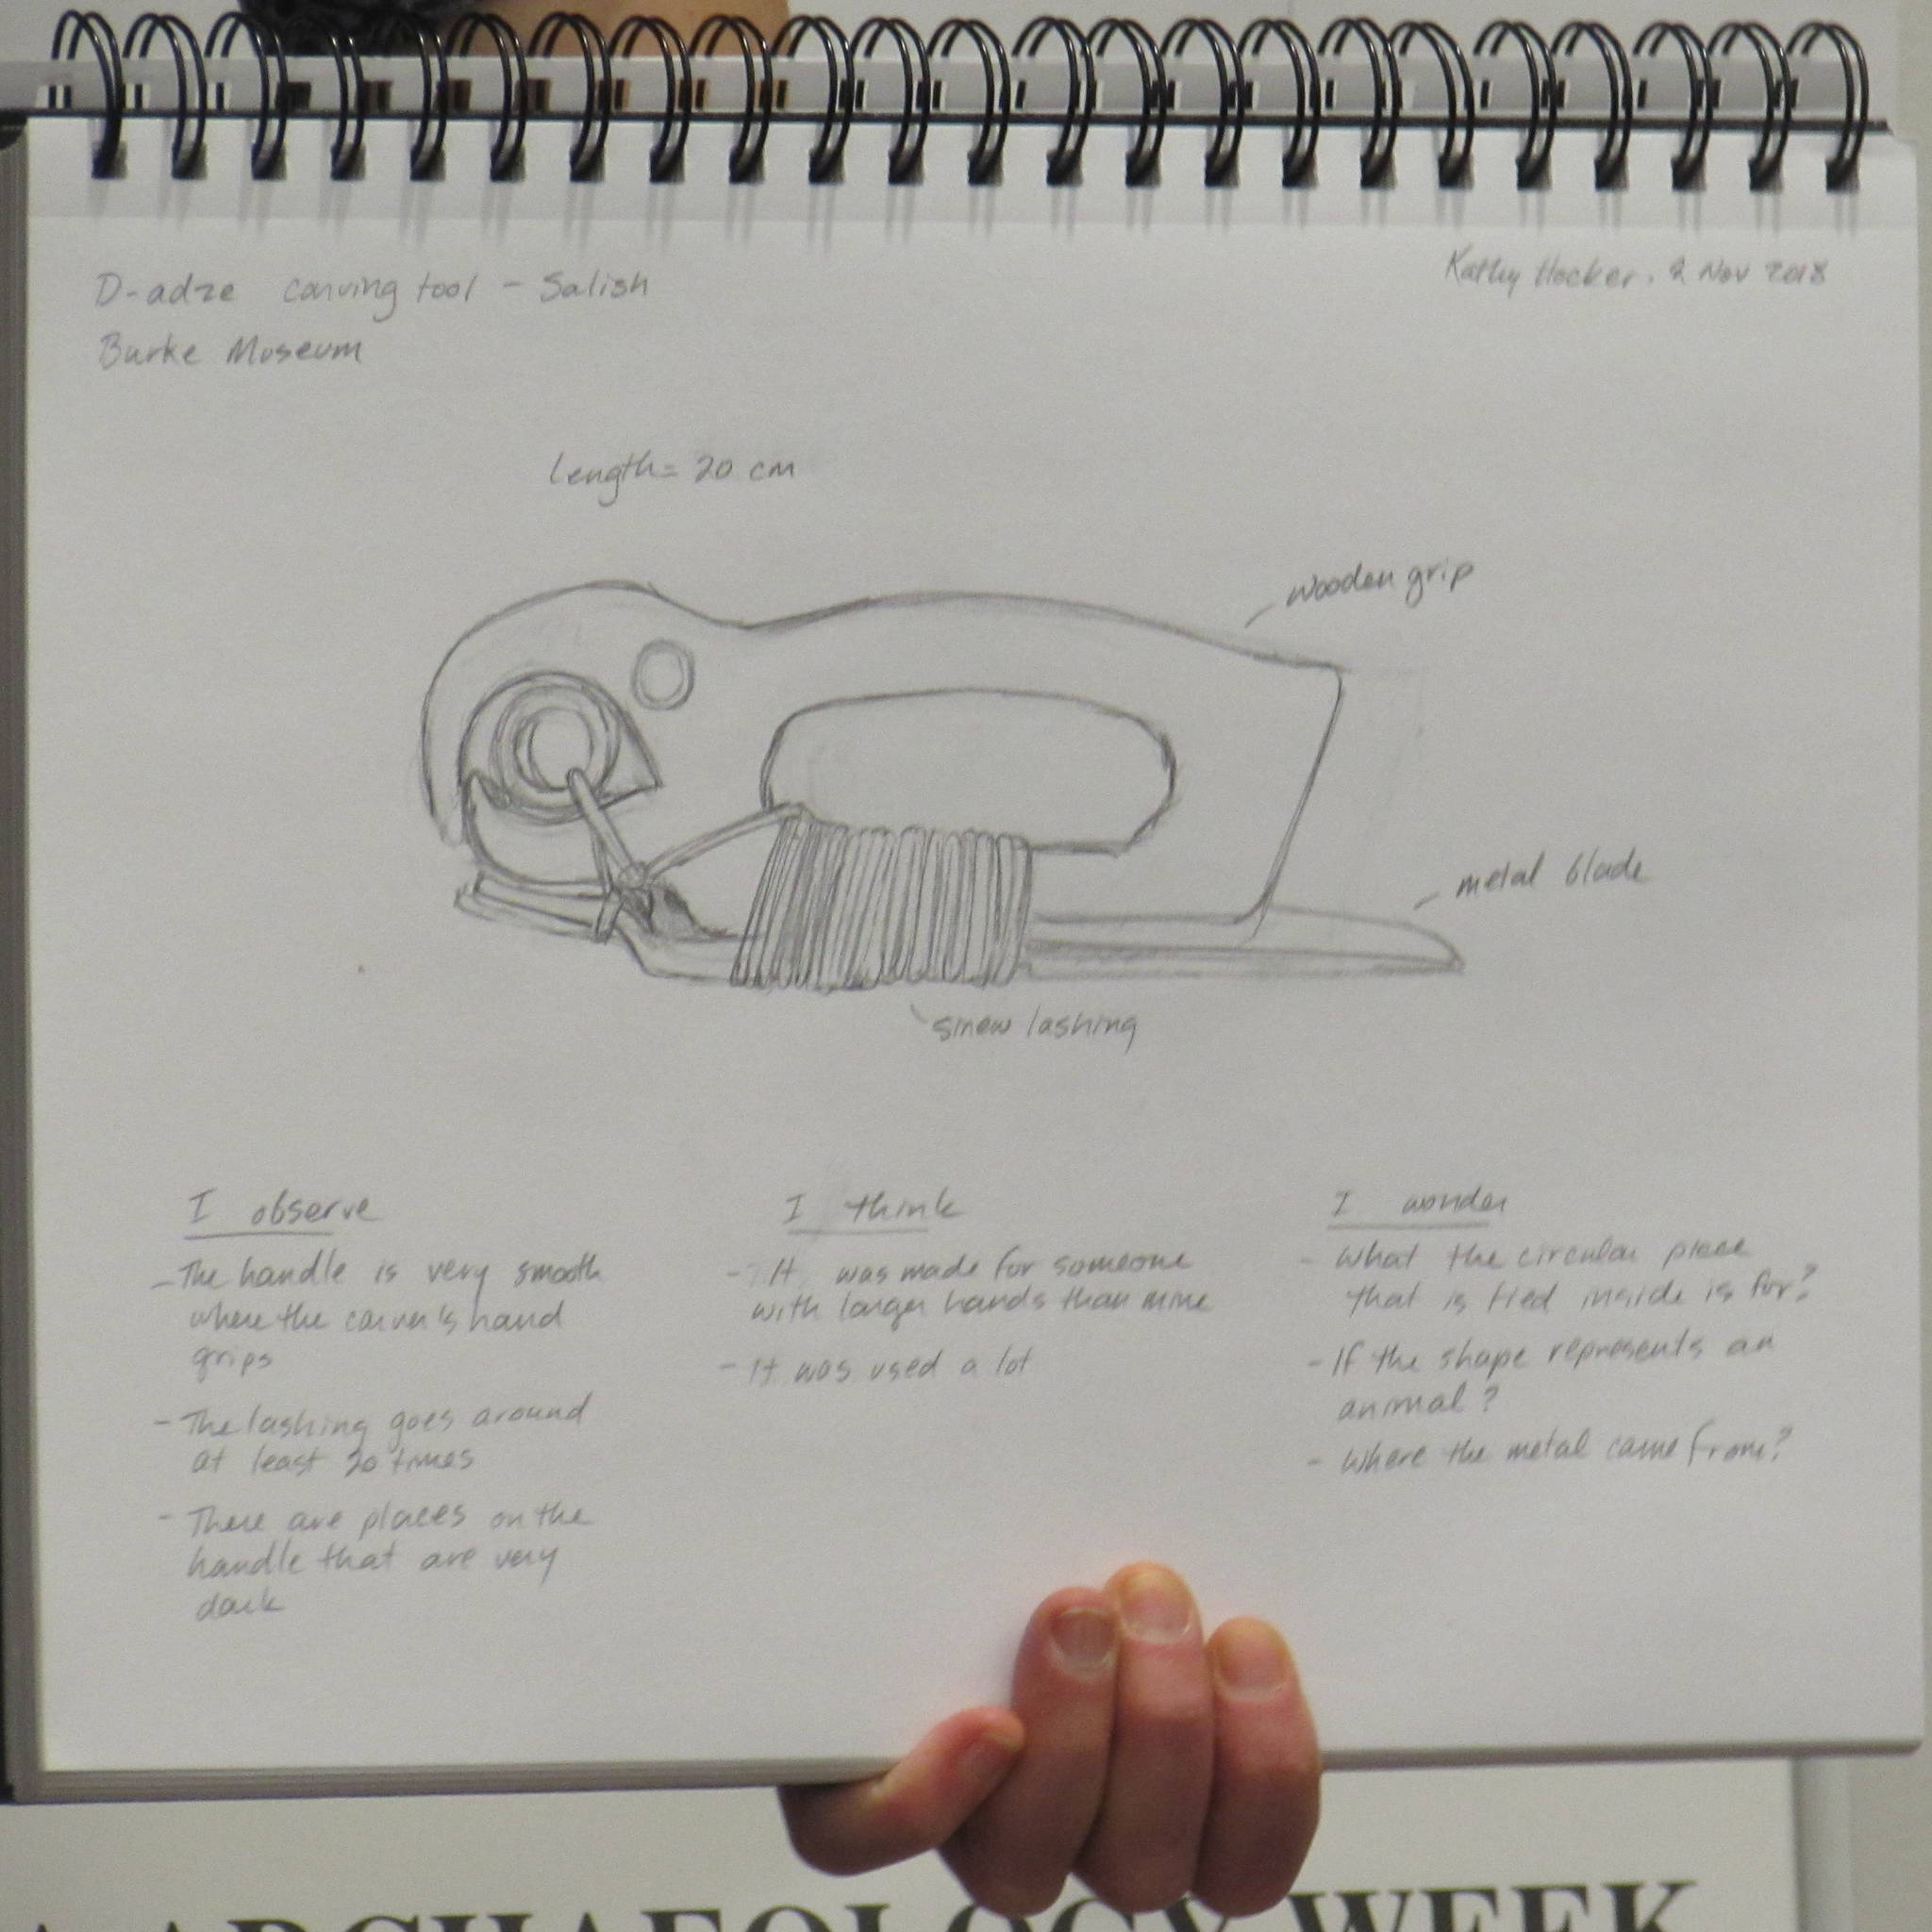 D-adze carving tool - Salish
Burke Museum
Kathy Hocker. 2 Nov 2018
length = 20 cm
wooden grip
metal blade
sinew lashing
I observe
- The handle is very smooth
where the carver's hand
grips
- The lashing goes around
at least 20 times
- There are places on the
handle that are very
dark
I think
- It was made for someone
with larger hands than mine
- It was used a lot
I wonder
- What the circular piece
that is tied inside is for?
- If the shape represents an
animal?
- Where the metal came from?
ARCHAEOLOGY WEEK